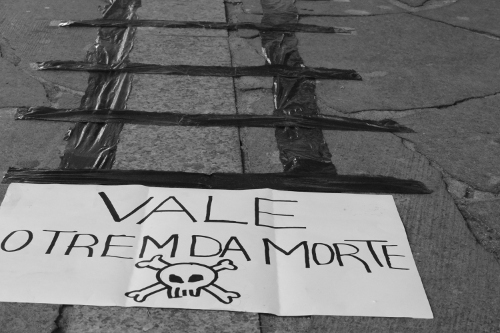 VALE
O TREM DA MORTE